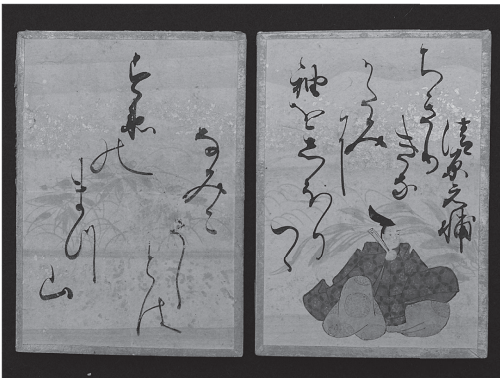 清原元輔
ちきり
きな
かたみ
に
袖をしほり
つゝ
すゑ
の
まつ
山
なみこ
さし
とは